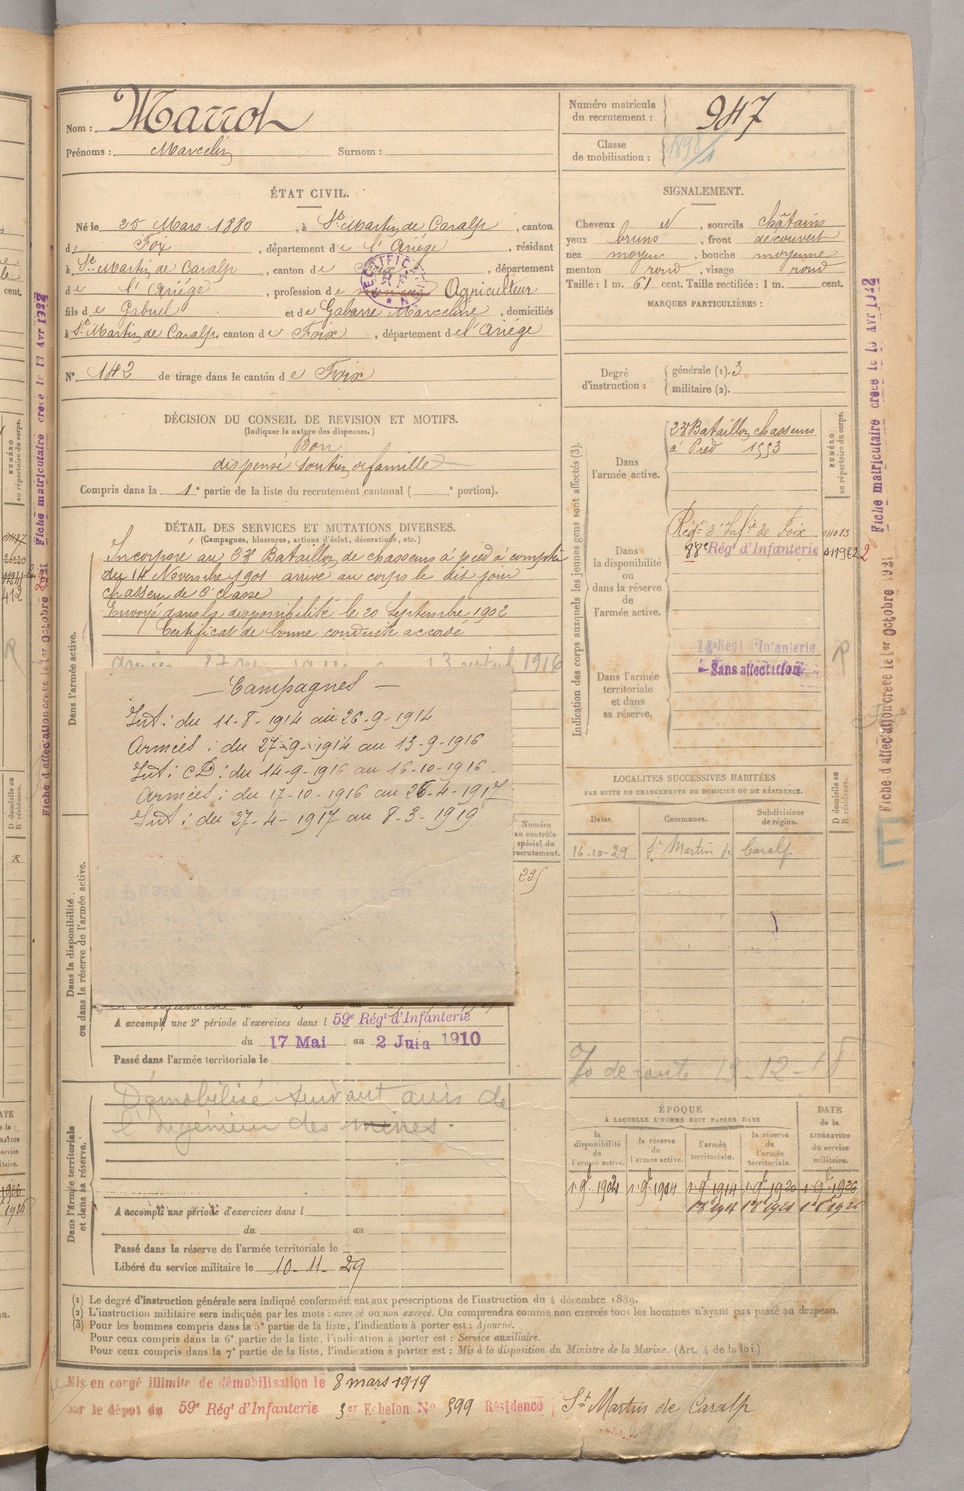 Nom : Marrot
Prénoms : Marcelin Surnom :
Numéro matricule du recrutement : 947
Classe de mobilisation : 1898/1
ÉTAT CIVIL.
Né le 25 Mars 1880, à St Martin de Caralp, canton
de Foix, département de l'Ariège, résidant
à St Martin de Caralp, canton de Foix, département
de l'Ariège, profession de Agriculteur
fils de Gabriel et de Gabarre Marceline, domiciliés
à St Martin de Caralp, canton de Foix, département de l'Ariège
N° 142 de tirage dans le canton de Foix
SIGNALEMENT.
Cheveux N, sourcils châtains
yeux bruns, front découvert
nez moyen, bouche moyenne
menton rond, visage rond
Taille : 1 m. 61 cent. Taille rectifiée : 1 m. cent.
MARQUES PARTICULIÈRES :
Degré d'instruction : générale (1). 3
militaire (2).
DÉCISION DU CONSEIL DE REVISION ET MOTIFS.
(Indiquer la nature des dispenses.)
Bon
dispensé soutien de famille
Compris dans la 1e partie de la liste du recrutement cantonal ( portion).
DÉTAIL DES SERVICES ET MUTATIONS DIVERSES.
(Campagnes, blessures, actions d'éclat, décorations, etc.)
Incorporé au 23e Bataillon de chasseurs à pied à compter
du 14 Novembre 1901 arrivé au corps le dit jour
chasseur de 2e classe
Envoyé dans la disponibilité le 20 Septembre 1902
Certificat de bonne conduite accordé
Dans l'armée active.
Campagnes
Int : du 11-8-1914 au 26-9-1914
Armées : du 27-9-1914 au 13-9-1916
Int : CD : du 14-9-1916 au 16-10-1916
Armées : du 17-10-1916 au 26-4-1917
Int : du 27-4-1917 au 8-3-1919
Dans la disponibilité
ou dans la réserve de l'armée active.
Numéro au contrôle spécial du recrutement.
235
A accompli une 2e période d'exercices dans l 59e Régt d'Infanterie
du 17 Mai au 2 Juin 1910
Passé dans l'armée territoriale le
Dans l'armée territoriale et dans sa réserve.
Démobilisé suivant avis de
l'Ingénieur des mines.
A accompli une période d'exercices dans l
du au
Passé dans la réserve de l'armée territoriale le
Libéré du service militaire le 10-11-29
Indication des corps auxquels les jeunes gens sont affectés (3).
Dans l'armée active.
23e Bataillon chasseurs
à Pied 1553
NUMÉRO au répertoire du corps.
Dans la disponibilité ou dans la réserve de l'armée active.
Régt d'Infie de Foix
88e Régt d'Infanterie
Dans l'armée territoriale et dans sa réserve.
Régt d'Infanterie
Sans affectation
LOCALITÉS SUCCESSIVES HABITÉES
PAR SUITE DE CHANGEMENTS DE DOMICILE OU DE RÉSIDENCE.
Dates. Communes. Subdivisions de région. D domicile ou R résidence.
16-10-29 St Martin de Caralp
ÉPOQUE
À LAQUELLE L'HOMME DOIT PASSER DANS
la disponibilité de l'armée active. la réserve de l'armée active. l'armée territoriale. la réserve de l'armée territoriale. DATE de la LIBÉRATION du service militaire.
(1) Le degré d'instruction générale sera indiqué conformément aux prescriptions de l'instruction du 4 décembre 1889.
(2) L'instruction militaire sera indiquée par les mots : exercé ou non exercé. On comprendra comme non exercés tous les hommes n'ayant pas passé au drapeau.
(3) Pour les hommes compris dans la 5e partie de la liste, l'indication à porter est : Ajourné.
Pour ceux compris dans la 6e partie de la liste, l'indication à porter est : Service auxiliaire.
Pour ceux compris dans la 7e partie de la liste, l'indication à porter est : Mis à la disposition du Ministre de la Marine. (Art. 4 de la loi.)
Mis en congé illimité de démobilisation le 8 mars 1919
par le dépôt du 59e Régt d'Infanterie 3er Echelon N° 599 Résidence St Martin de Caralp
Fiche d'affectation créée le 1er Octobre 1921
Fiche matriculaire créée le 13 Avr 1922
E